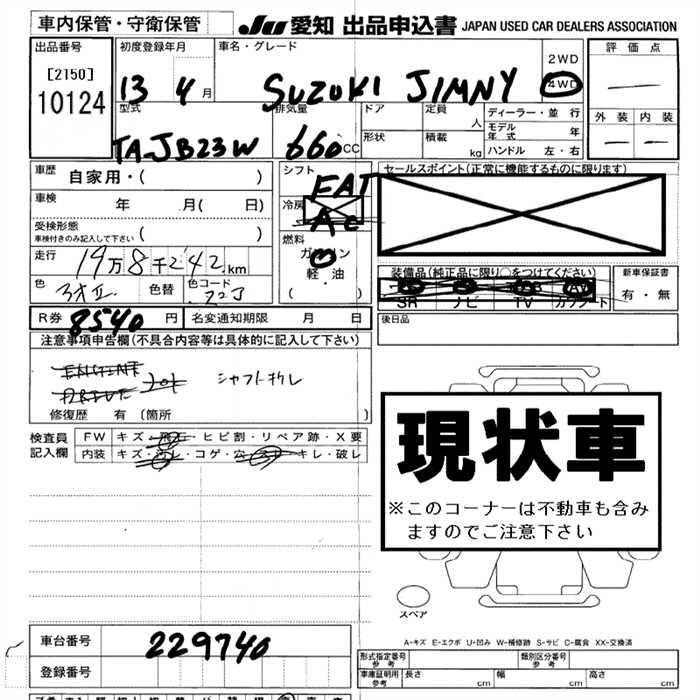 車内保管・守衛保管
JU 愛知 出品申込書 JAPAN USED CAR DEALERS ASSOCIATION
出品番号
[2150]
10124
初度登録年月
13 4月
車名・グレード
SUZUKI JIMNY
2WD
4WD
評価点
外装 内装
型式
TA-JB23W
排気量
660cc
ドア
形状
定員 人
積載 kg
ディーラー・並行
モデル年式 年
ハンドル 左・右
車歴 自家用・( )
車検 年 月( 日)
受検形態
車検付きのみ記入して下さい
走行 19万8千242km
色
色替
色コード
シフト FAT
冷房 AC
燃料
ガソリン
軽油
( )
セールスポイント(正常に機能するものに限ります)
装備品(純正品に限り○をつけてください)
SR ナビ TV カワシート
新車保証書
有・無
後日品
R券 8540円 名変通知期限 月 日
注意事項申告欄(不具合内容等は具体的に記入して下さい)
シャフト折レ
修復歴 有 〔箇所 〕
検査員記入欄
FW キズ・飛石・ヒビ割・リペア跡・X要
内装 キズ・汚レ・コゲ・穴・スレ・キレ・破レ
現状車
※このコーナーは不動車も含み
ますのでご注意下さい
スペア
A-キズ E-エクボ U-凹み W-補修跡 S-サビ C-腐食 XX-交換済
車台番号 229740
登録番号
形式指定番号 参考
類別区分番号 参考
車庫証明用 参考
長さ cm 幅 cm 高さ cm